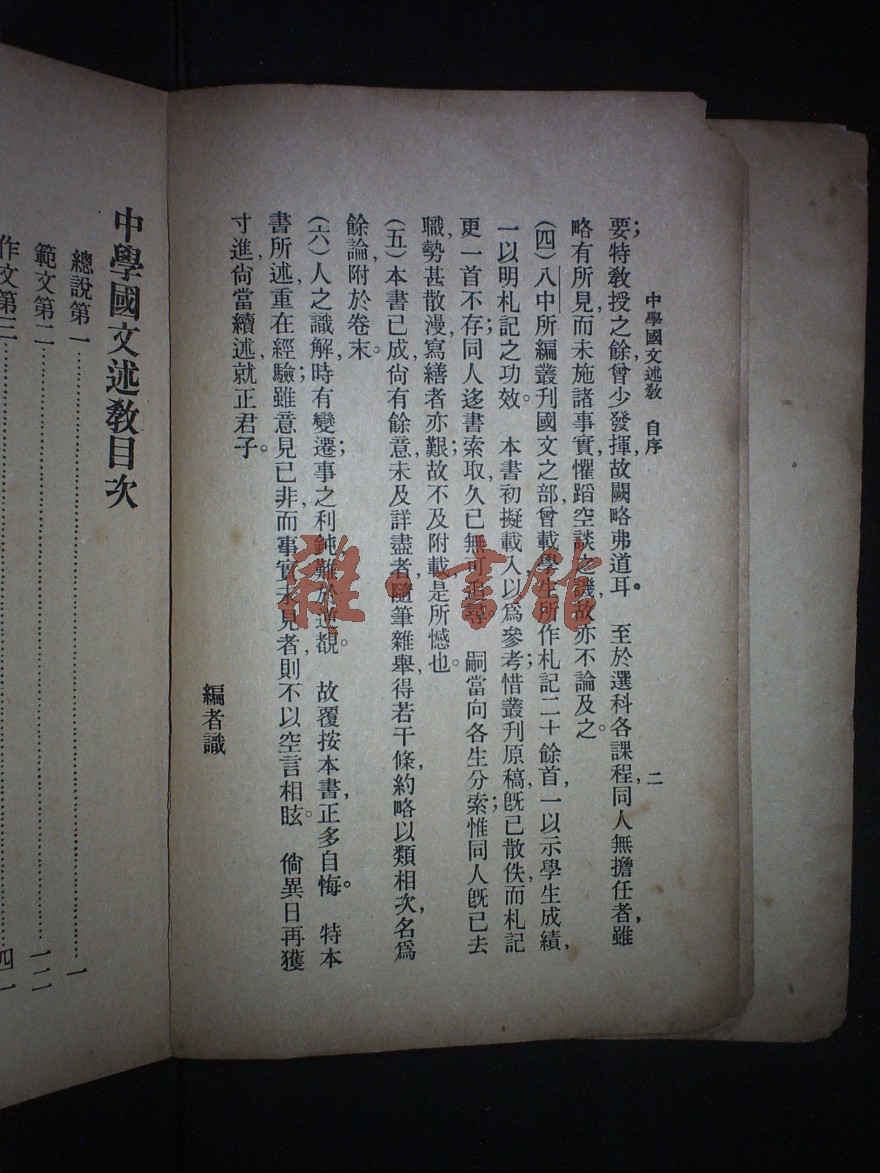 中學國文述教　自序
二
要；特教授之餘，曾少發揮，故闕略弗道耳。　至於選科各課程，同人無擔任者，雖
略有所見，而未施諸事實，懼蹈空談之譏，故亦不論及之。
(四)八中所編叢刊國文之部，曾載學生所作札記二十餘首，一以示學生成績，
一以明札記之功效。　本書初擬載入，以爲參考；惜叢刊原稿，旣已散佚，而札記
更一首不存；同人迻書索取，久已無可追尋。　嗣當向各生分索；惟同人旣已去
職，勢甚散漫，寫繕者亦艱；故不及附載，是所憾也。
(五)本書已成，尙有餘意未及詳盡者，隨筆雜舉，得若干條，約略以類相次，名爲
餘論，附於卷末。
(六)人之識解，時有變遷；事之利鈍，難於逆覩。　故覆按本書，正多自悔。　特本
書所述，重在經驗；雖意見已非，而事實未見者，則不以空言相眩。　倘異日再獲
寸進，尙當續述，就正君子。
編者識
中學國文述教目次
總說第一…………………………一
範文第二…………………………一二
作文第三…………………………四一
雜·書館